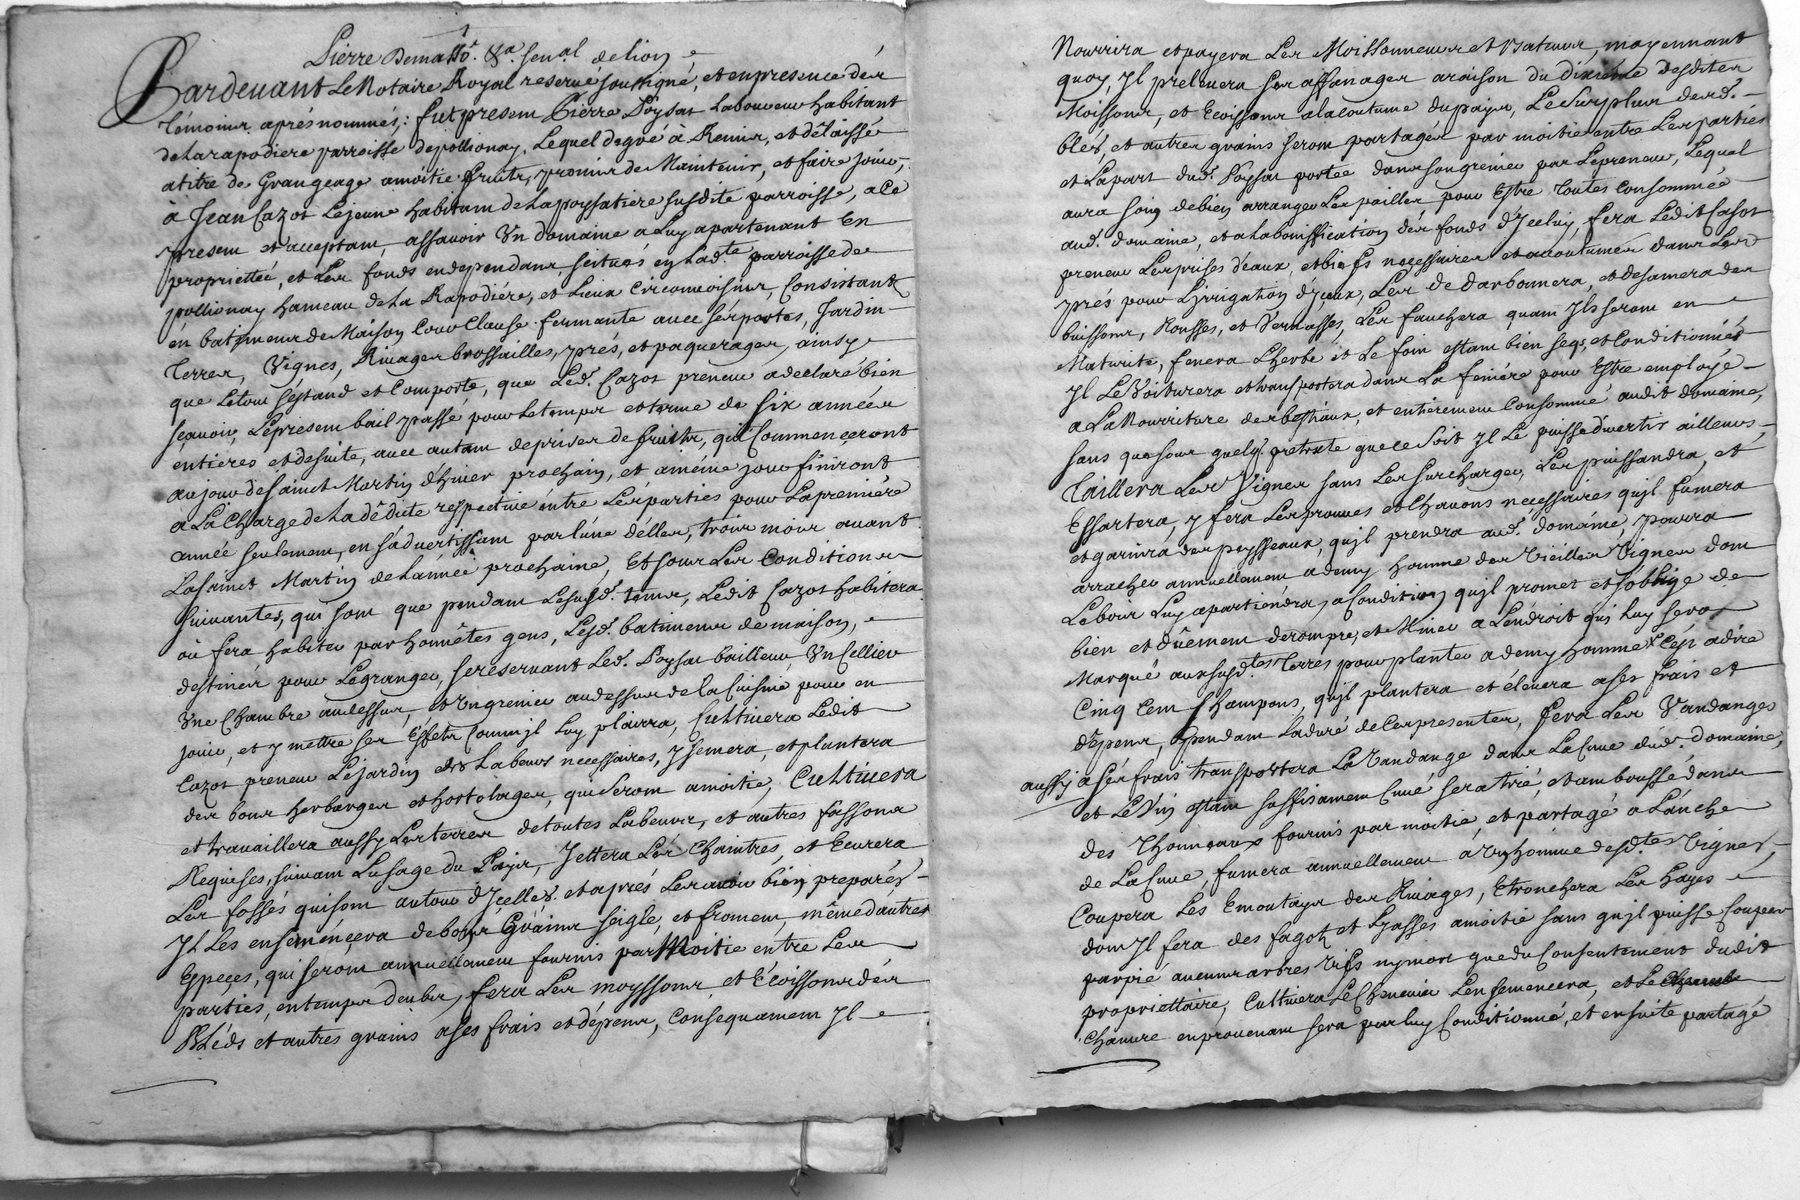 Pierre Demass. &a. sen.al de lion
Pardevant Le Notaire Royal reservé soussigné, et en presence des
témoins après nommés, : fut present Pierre Poysat Laboureur habitant
de La rapodiere parroisse de pollionay, Lequel de gré à Remis, et délaissé
a titre de Grangeage a moitie fruits, promis de Maintenir, et faire jouir,
à Jean Cazot Le jeune habitant de La poyssatiere susdite parroisse, a ce
present et acceptant, assavoir Un domaine a Luy apartenant En
proprietté, et Les fonds en dependans scitués en Lad.te parroisse de
pollionay hameau de La Rapodiére, et Lieux circomvoisins, Consistant
en batimens de Maison Cour Clause fermante avec ses portes, Jardin
Terres, Vignes, Rivages brossailles, prés, et paquerages, ainsy
que Le tout s'éstand et Comporte, que Led. Cazot preneur a declaré bien
sçavoir, Le present bail passé pour Le temps et terme de six années
entiéres et de suite, avec autant de prises de fruits, qui Commenceront
au jour de saint Martin d'hiver prochain, et a méme jour finiront
a La Charge de La dédite respective entre Les parties pour La premiére
année seulement, en s'advertissant par L'une d'elles, trois mois avant
La saint Martin de L'année prochaine, Et sous Les Conditions
suivantes, qui sont que pendant Le susd. tems, Ledit Cazot habitera
où fera habiter par honnêtes gens, Lesd. batimens de maison,
destinés pour Le granger, se reservant Led. Poysat bailleur Un Cellier
Une Chambre au dessus, et Un grenier au dessus de la Cuisine pour en
jouir, et y mettre ses Effets Comm'il Luy plairra, Cultivera Ledit
Cazot preneur Le jardin des Labeurs necessaires, y semera, et plantera
des bons herbages et hortolages, qui seront a moitié, Cultivera
et travaillera aussy Les terres de toutes Labeurs, et autres fassons
Requises, suivant L'usage du Païs, Jettera Les Chaintres, et Ecurera
Les fossés qui sont autour d'Jcelles, et aprés Les avoir bien preparés
Jl Les ensemencera de bons Grains seigle, et froment, même d'autres
Especes, qui seront annuellement fournis par Moitie entre Les
parties, en temps deubs, fera Les moyssons, et Ecoissons dés
Bléds et autres grains a ses frais et dépens, Consequament Jl
Nourrira et payera Les Moissonneurs et Bateurs, moyennant
quoy, Jl prelevera ses affanages a raison du dixiéme desdites
Moissons, et Ecoissons a la coutume du païs, Le surplus desd.
bléds, et autres grains seront partagés par moitie entre Les parties
et La part dud. Poysat portée dans son grenier par Le preneur, Lequel
aura soin de bien arranger Les pailles pour Estre toutes Consommée
aud. domaine, et a La bonnification des fonds d'Jceluy, fera Ledit Cazot
preneur Les prises d'eaux, et biefs necessaires et accoutumés dans Les
prés pour L'irrigation d'Jceux, Les de darbonnera, et desamera des
buissons, Rousses, et Vernasses, Les fauchera quant Jls seront en
Maturite, fenera L'herbe et Le foin estant bien seq, et Conditionnés
Jl Le Voiturera et transportera dans La feniére pour Estre employé
a La Nourriture des bestiaux, et entierement Consommé audit domaine,
sans que sous quelq. pretexte que ce soit Jl Le puisse divertir ailleurs
Taillera Les Vignes sans Les surcharger, Les puissandra, et
Essartera, y fera Les provves et Chavons necessaires qu'jl fumera
et garnira des peysseaux, qu'jl prendra aud. domaine, pourra
arracher annuellement a demy homme des Vieilles Vignes dont
Le bois Luy apartiendra, a Condition qu'jl promet et s'oblige de
bien et dûement derompre, et Miner a L'endroit qui Luy sera
Marqué aux susd.tes Terres pour planter a demy homme C'est a dire
Cinq Cent Champons, qu'jl plantera et élévera a ses frais et
dépens, pendant La duré de Ces presentes, fera Les Vandanges
aussy a sés frais transportera La Vandange dans La Cuve dud. domaine,
et Le Vin estant suffisament Cuvé sera trié, et amboussé dans
des Thonneaux fournis par moitié, et partagé a L'anche
de La Cuve, fumera annuellement à Un homme desd.tes Vignes,
Coupera Les Emoutays des Rivages, Etronchera Les hayes
dont Jl fera des fagots et Gasses a moitie sans qu'jl puisse Couper
par pié aucuns arbres Vifs ny mort que du Consentement dudit
proprietaire, Cultivera Le Chenevier L'ensemencera, et Le
Chanvre en provenant sera par luy Conditionné, et ensuite partagé